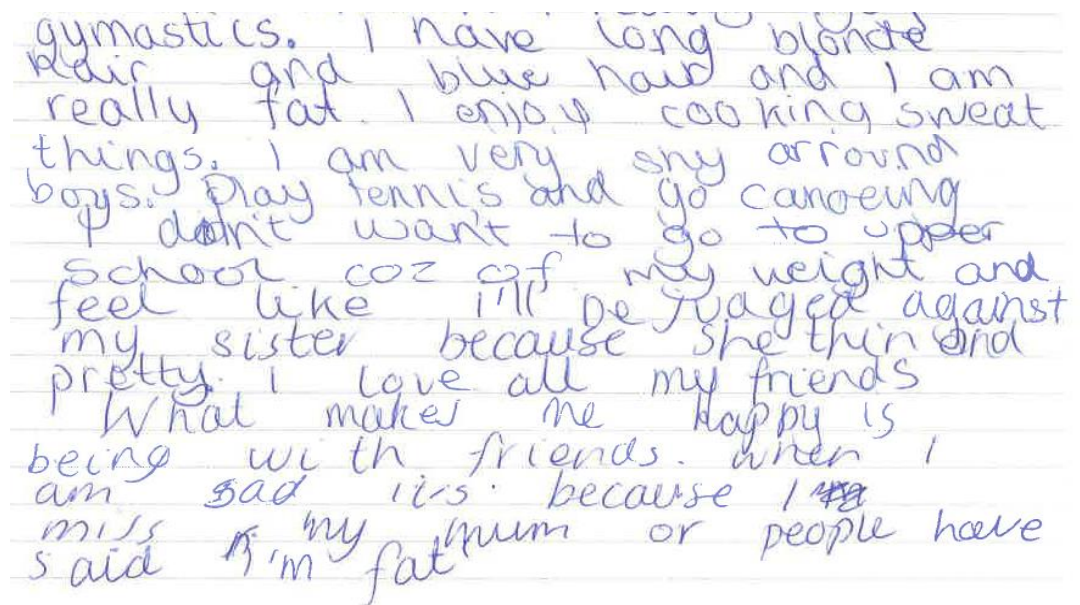 gymastics. I have long blonde
Hair and blue hair and I am
really fat. I enjoy cooking sweat
things. I am very shy arround
boys. Play tennis and go canoeing
I don't want to go to upper
School coz of my weight and
feel like i'll be judged against
my sister because she thin and
pretty. I love all my friends
What makes me Happy is
being with friends. when I
am sad its because I
miss my mum or people have
said I'm fat